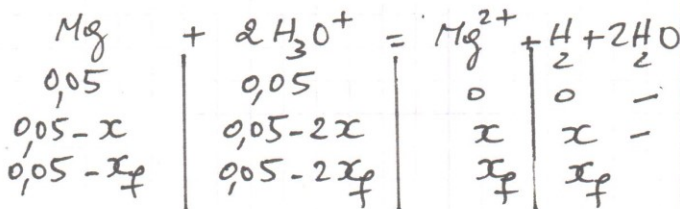 Mg + 2H₃O⁺ = Mg²⁺ + H₂ + 2H₂O
0,05 0,05 0 0 –
0,05-x 0,05-2x x x –
0,05-x_f 0,05-2x_f x_f x_f